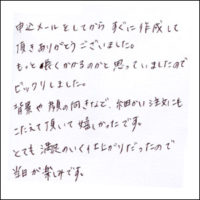 申込メールをしてから すぐに作成して
頂きありがとうございました。
もっと長くかかるのかと思っていましたので
ビックリしました。
背景や顔の向きなど、細かい注文にも
こたえて頂いて嬉しかったです。
とても満足のいく仕上がりだったので
当日が楽しみです。